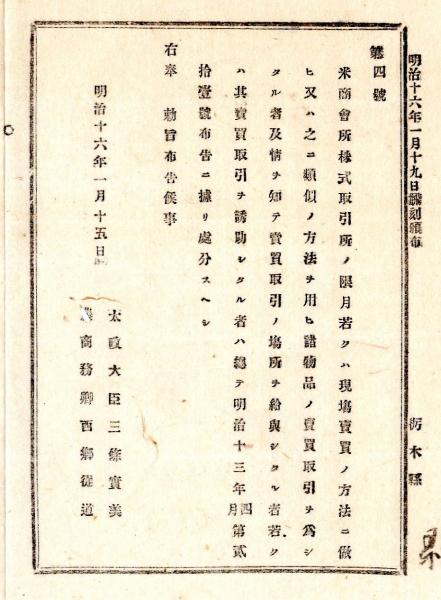 明治十六年一月十九日飜刻頒布
栃木縣
第四號
米商會所株式取引所ノ限月若クハ現塲賣買ノ方法ニ倣
ヒ又ハ之ニ類似ノ方法ヲ用ヒ諸物品ノ賣買取引ヲ爲シ
タル者及情ヲ知テ賣買取引ノ塲所ヲ給與シタル者若ク
ハ其賣買取引ヲ誘助シタル者ハ總テ明治十三年四月第貳
拾壹號布告ニ據リ處分スヘシ
右奉　勅旨布告候事
明治十六年一月十五日
太政大臣三條實美
農商務卿西鄕從道